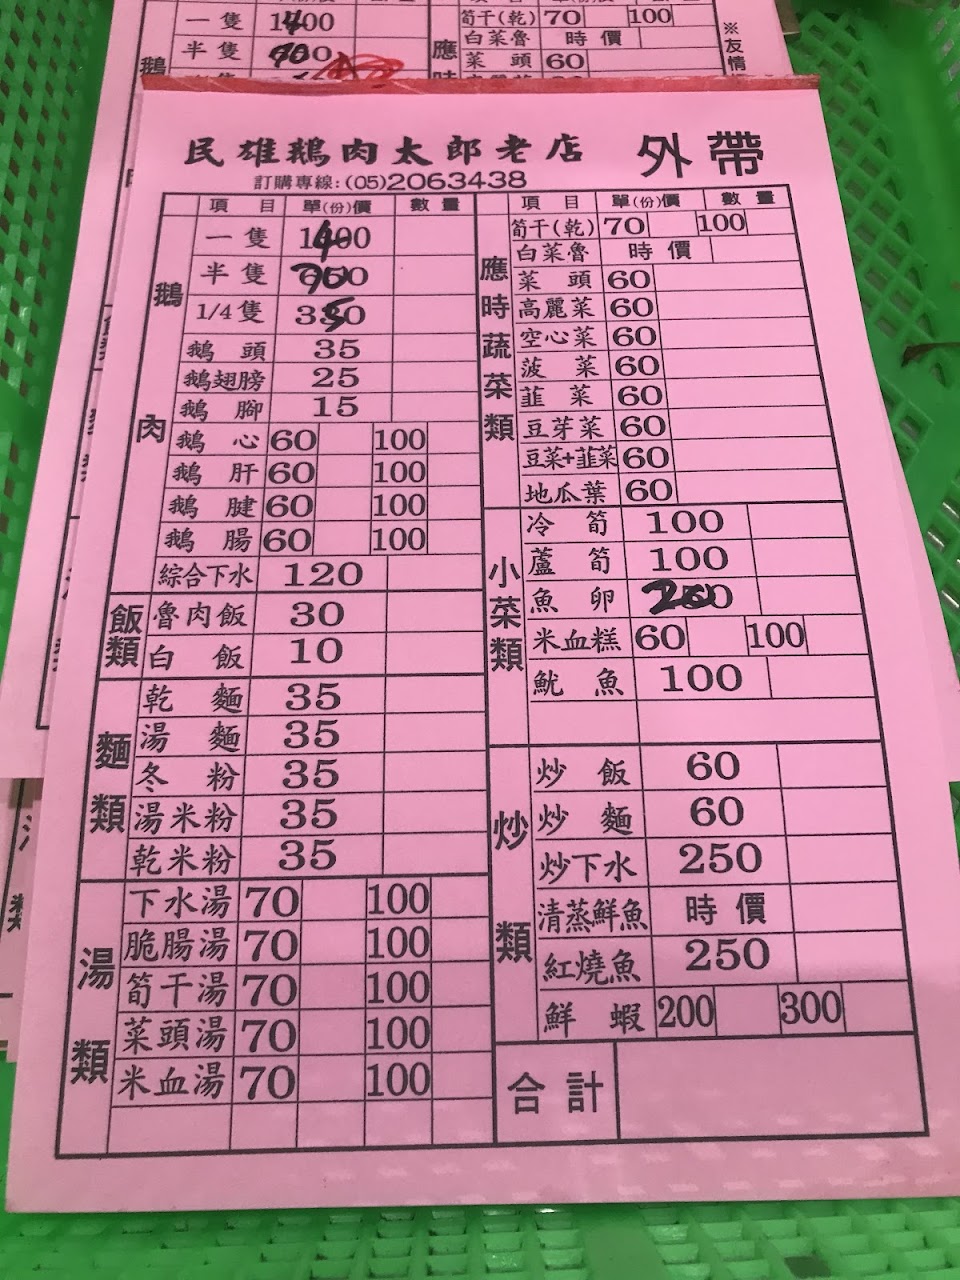 一隻 1400
半隻 700
鵝
筍干(乾) 70 100
白菜魯 時價
菜頭 60
應時
※友情
民雄鵝肉太郎老店 外帶
訂購專線:(05)2063438
項目 單(份)價 數量
鵝肉
一隻
半隻
1/4隻
鵝頭 35
鵝翅膀 25
鵝腳 15
鵝心 60 100
鵝肝 60 100
鵝腱 60 100
鵝腸 60 100
綜合下水 120
飯類
魯肉飯 30
白飯 10
麵類
乾麵 35
湯麵 35
冬粉 35
湯米粉 35
乾米粉 35
湯類
下水湯 70 100
脆腸湯 70 100
筍干湯 70 100
菜頭湯 70 100
米血湯 70 100
項目 單(份)價 數量
應時蔬菜類
筍干(乾) 70 100
白菜魯 時價
菜頭 60
高麗菜 60
空心菜 60
菠菜 60
韭菜 60
豆芽菜 60
豆菜+韮菜 60
地瓜葉 60
小菜類
冷筍 100
蘆筍 100
魚卵
米血糕 60 100
魷魚 100
炒類
炒飯 60
炒麵 60
炒下水 250
清蒸鮮魚 時價
紅燒魚 250
鮮蝦 200 300
合計